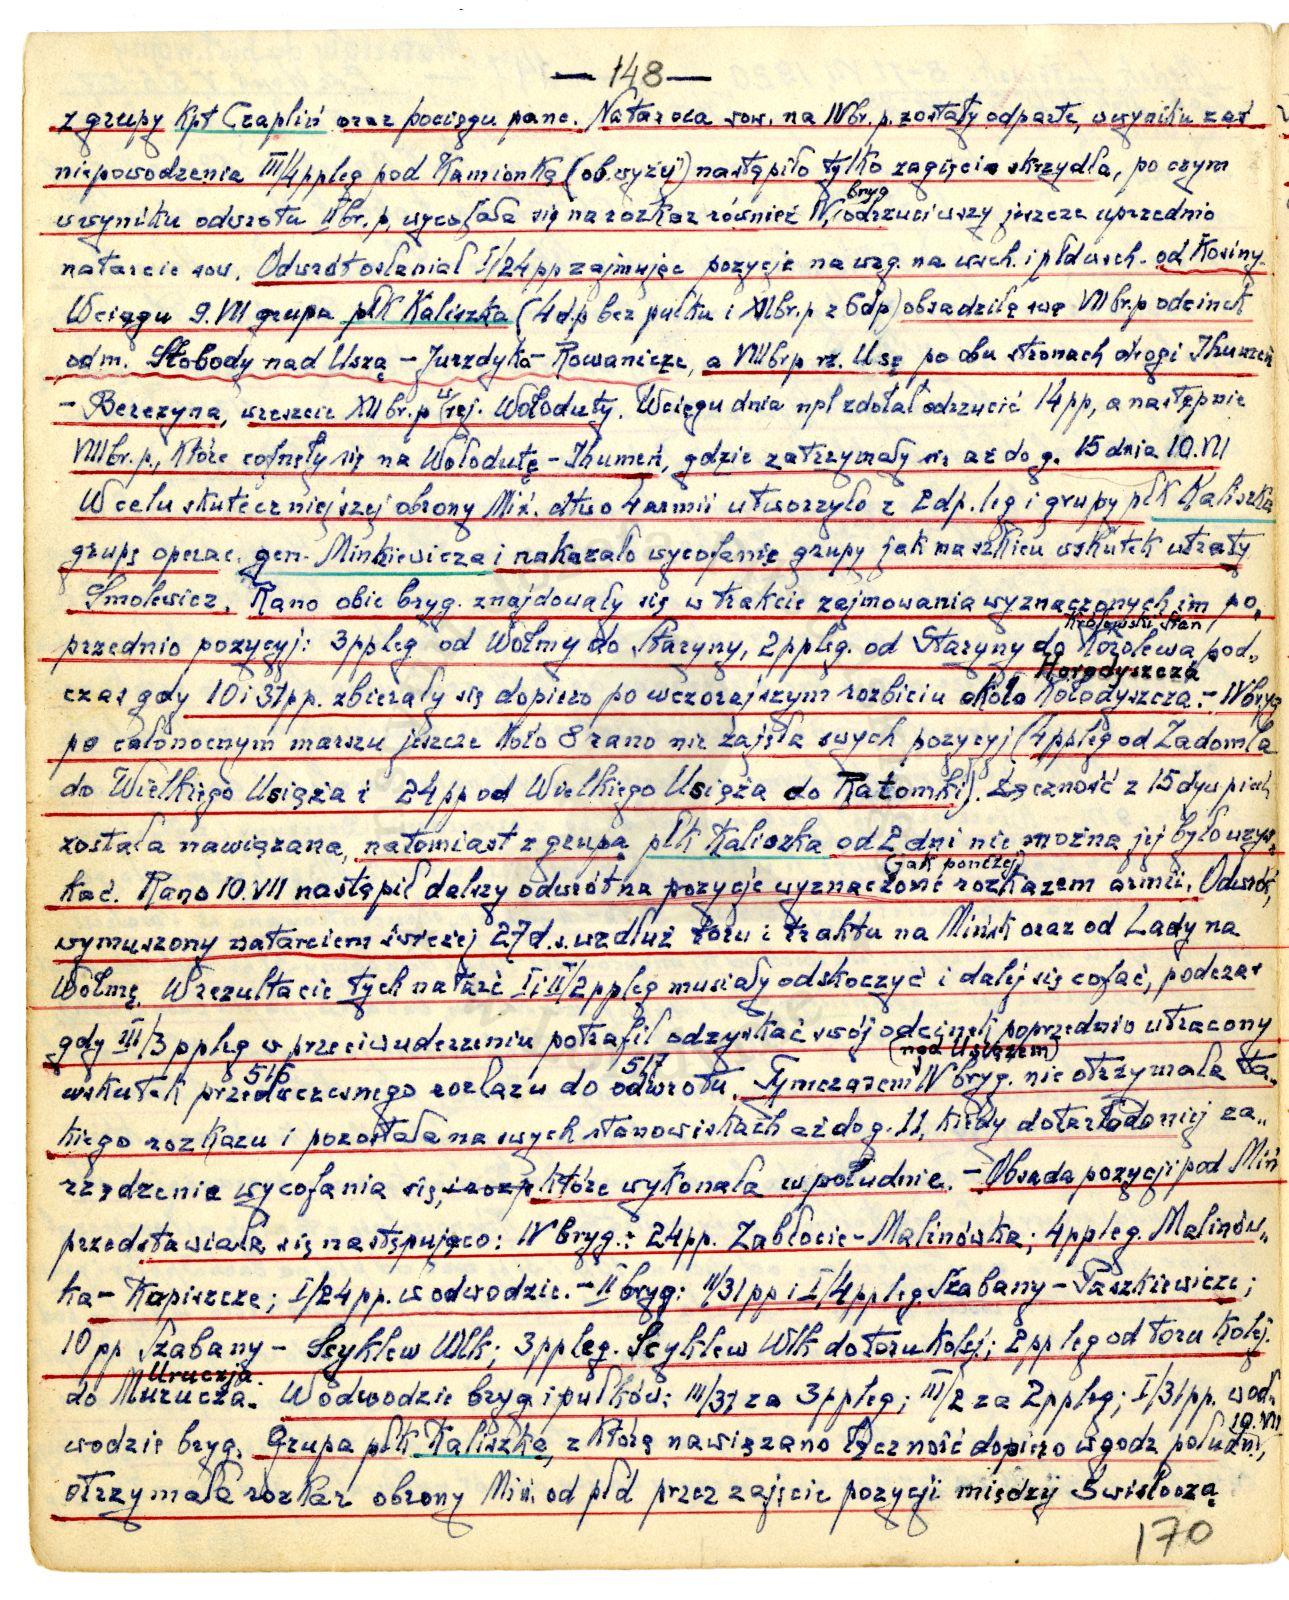 — 148 —
z grupy kpt Czaplin oraz pociągu panc. Natarcia sow. na IV br. p. zostały odparte, w wyniku zaś
niepowodzenia III/4 ppleg pod Kamionką (ob. wyżej) nastąpiło tylko zagięcie skrzydła, po czym
w wyniku odwrotu II br. p. wycofała się na rozkaz również IV bryg, odrzuciwszy jeszcze uprzednio
natarcie sow. Odwrót osłaniał I/24 pp zajmując pozycje na wzg. na wsch. i płd wsch. od Kosiny.
W ciągu 9.VII grupa płk Kaliszka (4 d.p bez pułku i XII br. p z 6 dp) obsadziła swą VII br. p odcinek
od m. Słobody nad Uszą – Jurzdyka – Rowanicze, a VIII br p rz. Usę po obu stronach drogi Ihumeń
– Berezyna, wreszcie XII br. p w rej. Wołoduty. W ciągu dnia npl zdołał odrzucić 14 pp, a następnie
VIII br. p., które cofnęły się na Wołodutę – Ihumeń, gdzie zatrzymały się aż do g. 15 dnia 10.VII
W celu skuteczniejszej obrony Miń. dtwo 4 armii utworzyło z 2 dp. leg i grupy płk Kaliszka
grupę operac. gen. Minkiewicza i nakazało wycofanie grupy jak na szkicu wskutek utraty
Smolewicz. Rano obie bryg. znajdowały się w trakcie zajmowania wyznaczonych im po„
przednio pozycyj: 3 ppleg od Wołmy do Staryny, 2 ppleg. od Staryny do Korolewa Królewski Stan, pod„
czas gdy 10 i 31 pp. zbierały się dopiero po wczorajszym rozbiciu około Kołodyszcza Horodyszcza. – IV bryg
po całonocnym marszu jeszcze koło 8 rano nie zajęła swych pozycyj (4 ppleg od Zadomla
do Wielkiego Usiąża i 24 pp od Wielkiego Usiąża do Ratomki). Łączność z 15 dyw piech
została nawiązana, natomiast z grupą płk Kaliszka od 2 dni nie można jej było uzys„
kać. Rano 10.VII nastąpił dalszy odwrót na pozycje wyznaczone (jak poniżej) rozkazem armii. Odwrót,
wymuszony natarciem świeżej 27 d.s. wzdłuż toru i traktu na Mińsk oraz od Lady na
Wołmę. W rezultacie tych natarć I i II/2 ppleg musiały odskoczyć i dalej się cofać, podczas
gdy III/3 ppleg w przeciwuderzeniu potrafił odzyskać swój odcinek poprzednio utracony
wskutek przedwczesnego 516 rozkazu do odwrotu 517. Tymczasem (nad Usiążem) IV bryg. nie otrzymała ta„
kiego rozkazu i pozostała na swych stanowiskach aż do g. 11, kiedy dotarło do niej za„
rządzenie wycofania się, które wykonała w południe. – Obsada pozycji pod Miń
przedstawiała się następująco: IV bryg.: 24 pp. Zabłocie – Malinówka; 4 ppleg. Malinów„
ka – Kapiszcze; I/24 pp. w odwodzie. – II bryg: II/31 pp i I/4 ppleg. Szabany – Paszkiewicze;
10 pp Szabany – Scyklew Wlk; 3 ppleg. Scyklew Wlk do toru kolej; 2 ppleg od toru kolej.
do Murucza Uruczja. W odwodzie bryg i pułków: III/37 za 3 ppleg; III/2 za 2 ppleg; I/31 pp. w od„
wodzie bryg. Grupa płk Kaliszka, z którą nawiązano łączność dopiero w godz połudn. 10.VII,
otrzymała rozkaz obrony Miń. od płd przez zajęcie pozycji między Świsłoczą
170